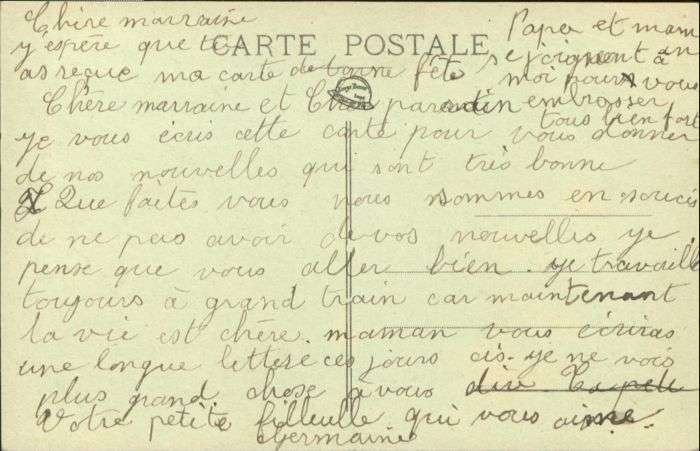 Chère marraine
y espère que tu
as reçue ma carte de bonne fête
CARTE POSTALE
Papa et mam
se joignent an
à
moi pour vous
embrosser
tous bien fort
Chère marraine et Cher parrain
ye vous écris cette carte pour vous donner
de nos nouvelles qui sont très bonne
Que faites vous nous sommes en soucies
de ne pas avoir de vos nouvelles ye
pense que vous aller bien. ye travaille
toujours à grand train car maintenant
la vie est chère. maman vous écriras
une longue lettre ces jours cis. ye ne vois
plus grand chose à vous dire
Votre petite filleulle qui vous aime.
Germaine